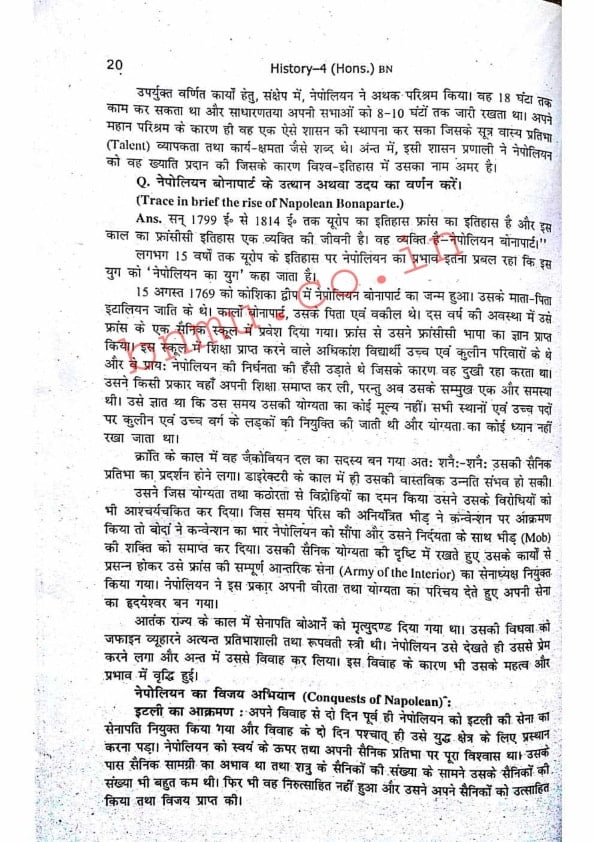 20
History–4 (Hons.) BN
उपर्युक्त वर्णित कार्यों हेतु, संक्षेप में, नेपोलियन ने अथक परिश्रम किया। वह 18 घंटा तक
काम कर सकता था और साधारणतया अपनी सभाओं को 8-10 घंटों तक जारी रखता था। अपने
महान परिश्रम के कारण ही वह एक ऐसे शासन की स्थापना कर सका जिसके सूत्र वास्य प्रतिभा
(Talent) व्यापकता तथा कार्य-क्षमता जैसे शब्द थे। अंन्त में, इसी शासन प्रणाली ने नेपोलियन
को वह ख्याति प्रदान की जिसके कारण विश्व-इतिहास में उसका नाम अमर है।
Q. नेपोलियन बोनापार्ट के उत्थान अथवा उदय का वर्णन करें।
(Trace in brief the rise of Napolean Bonaparte.)
Ans. सन् 1799 ई॰ से 1814 ई॰ तक यूरोप का इतिहास फ्रांस का इतिहास है और इस
काल का फ्रांसीसी इतिहास एक व्यक्ति की जीवनी है। वह व्यक्ति है–नेपोलियन बोनापार्ट।"
लगभग 15 वर्षों तक यूरोप के इतिहास पर नेपोलियन का प्रभाव इतना प्रबल रहा कि इस
युग को 'नेपोलियन का युग' कहा जाता है।
15 अगस्त 1769 को कोशिका द्वीप में नेपोलियन बोनापार्ट का जन्म हुआ। उसके माता-पिता
इटालियन जाति के थे। कार्लो बोनापार्ट, उसके पिता एवं वकील थे। दस वर्ष की अवस्था में उसे
फ्रांस के एक सैनिक स्कूल में प्रवेश दिया गया। फ्रांस से उसने फ्रांसीसी भाषा का ज्ञान प्राप्त
किया। इस स्कूल में शिक्षा प्राप्त करने वाले अधिकांश विद्यार्थी उच्च एवं कुलीन परिवारों के थे
और वे प्राय: नेपोलियन की निर्धनता की हँसी उड़ाते थे जिसके कारण वह दुखी रहा करता था।
उसने किसी प्रकार वहाँ अपनी शिक्षा समाप्त कर ली, परन्तु अब उसके सम्मुख एक और समस्या
थी। उसे ज्ञात था कि उस समय उसकी योग्यता का कोई मूल्य नहीं। सभी स्थानों एवं उच्च पदों
पर कुलीन एवं उच्च वर्ग के लड़कों की नियुक्ति की जाती थी और योग्यता का कोई ध्यान नहीं
रखा जाता था।
क्रांति के काल में वह जैकोवियन दल का सदस्य बन गया अत: शनै:-शनै: उसकी सैनिक
प्रतिभा का प्रदर्शन होने लगा। डाइरेक्टरी के काल में ही उसकी वास्तविक उन्नति संभव हो सकी।
उसने जिस योग्यता तथा कठोरता से विद्रोहियों का दमन किया उसने उसके विरोधियों को
भी आश्चर्यचकित कर दिया। जिस समय पेरिस की अनियंत्रित भीड़ ने कन्वेन्शन पर आक्रमण
किया तो बोर्दा ने कन्वेन्शन का भार नेपोलियन को सौंपा और उसने निर्दयता के साथ भीड़ (Mob)
की शक्ति को समाप्त कर दिया। उसकी सैनिक योग्यता की दृष्टि में रखते हुए उसके कार्यों से
प्रसन्न होकर उसे फ्रांस की सम्पूर्ण आन्तरिक सेना (Army of the Interior) का सेनाध्यक्ष नियुक्त
किया गया। नेपोलियन ने इस प्रकार अपनी वीरता तथा योग्यता का परिचय देते हुए अपनी सेना
का हृदयेश्वर बन गया।
आतंक राज्य के काल में सेनापति बोआर्ने को मृत्युदण्ड दिया गया था। उसकी विधवा को
जफाइन व्यूहारने अत्यन्त प्रतिभाशाली तथा रूपवती स्त्री थी। नेपोलियन उसे देखते ही उससे प्रेम
करने लगा और अन्त में उससे विवाह कर लिया। इस विवाह के कारण भी उसके महत्व और
प्रभाव में वृद्धि हुई।
नेपोलियन का विजय अभियान (Conquests of Napolean) :
इटली का आक्रमण : अपने विवाह से दो दिन पूर्व ही नेपोलियन को इटली की सेना का
सेनापति नियुक्त किया गया और विवाह के दो दिन पश्चात् ही उसे युद्ध क्षेत्र के लिए प्रस्थान
करना पड़ा। नेपोलियन को स्वयं के ऊपर तथा अपनी सैनिक प्रतिभा पर पूरा विश्वास था। उसके
पास सैनिक सामग्री का अभाव था तथा शत्रु के सैनिकों की संख्या के सामने उसके सैनिकों की
संख्या भी बहुत कम थी। फिर भी वह निरुत्साहित नहीं हुआ और उसने अपने सैनिकों को उत्साहित
किया तथा विजय प्राप्त की।
bnmu.co.in